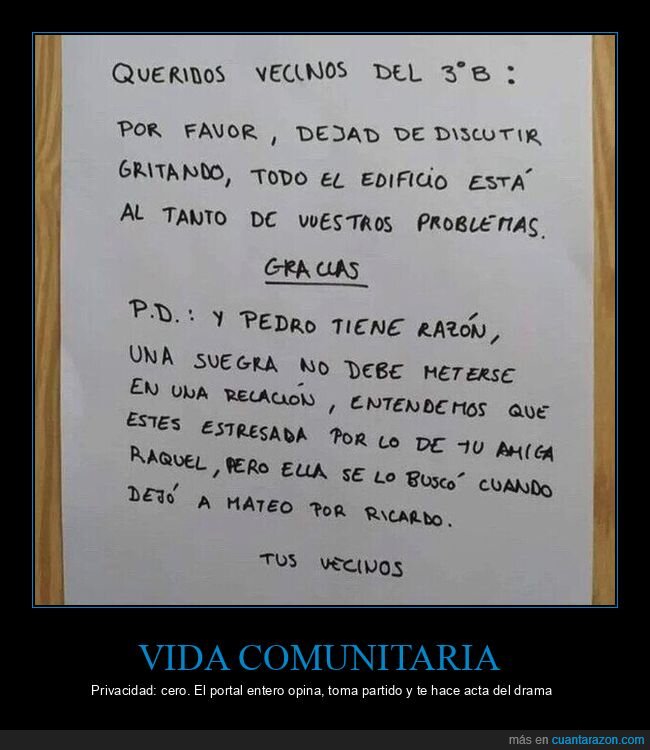 QUERIDOS VECINOS DEL 3°B:
POR FAVOR, DEJAD DE DISCUTIR
GRITANDO, TODO EL EDIFICIO ESTÁ
AL TANTO DE VUESTROS PROBLEMAS.
GRACIAS
P.D.: Y PEDRO TIENE RAZÓN,
UNA SUEGRA NO DEBE METERSE
EN UNA RELACIÓN, ENTENDEMOS QUE
ESTES ESTRESADA POR LO DE TU AMIGA
RAQUEL, PERO ELLA SE LO BUSCÓ CUANDO
DEJÓ A MATEO POR RICARDO.
TUS VECINOS
VIDA COMUNITARIA
Privacidad: cero. El portal entero opina, toma partido y te hace acta del drama
más en cuantarazon.com